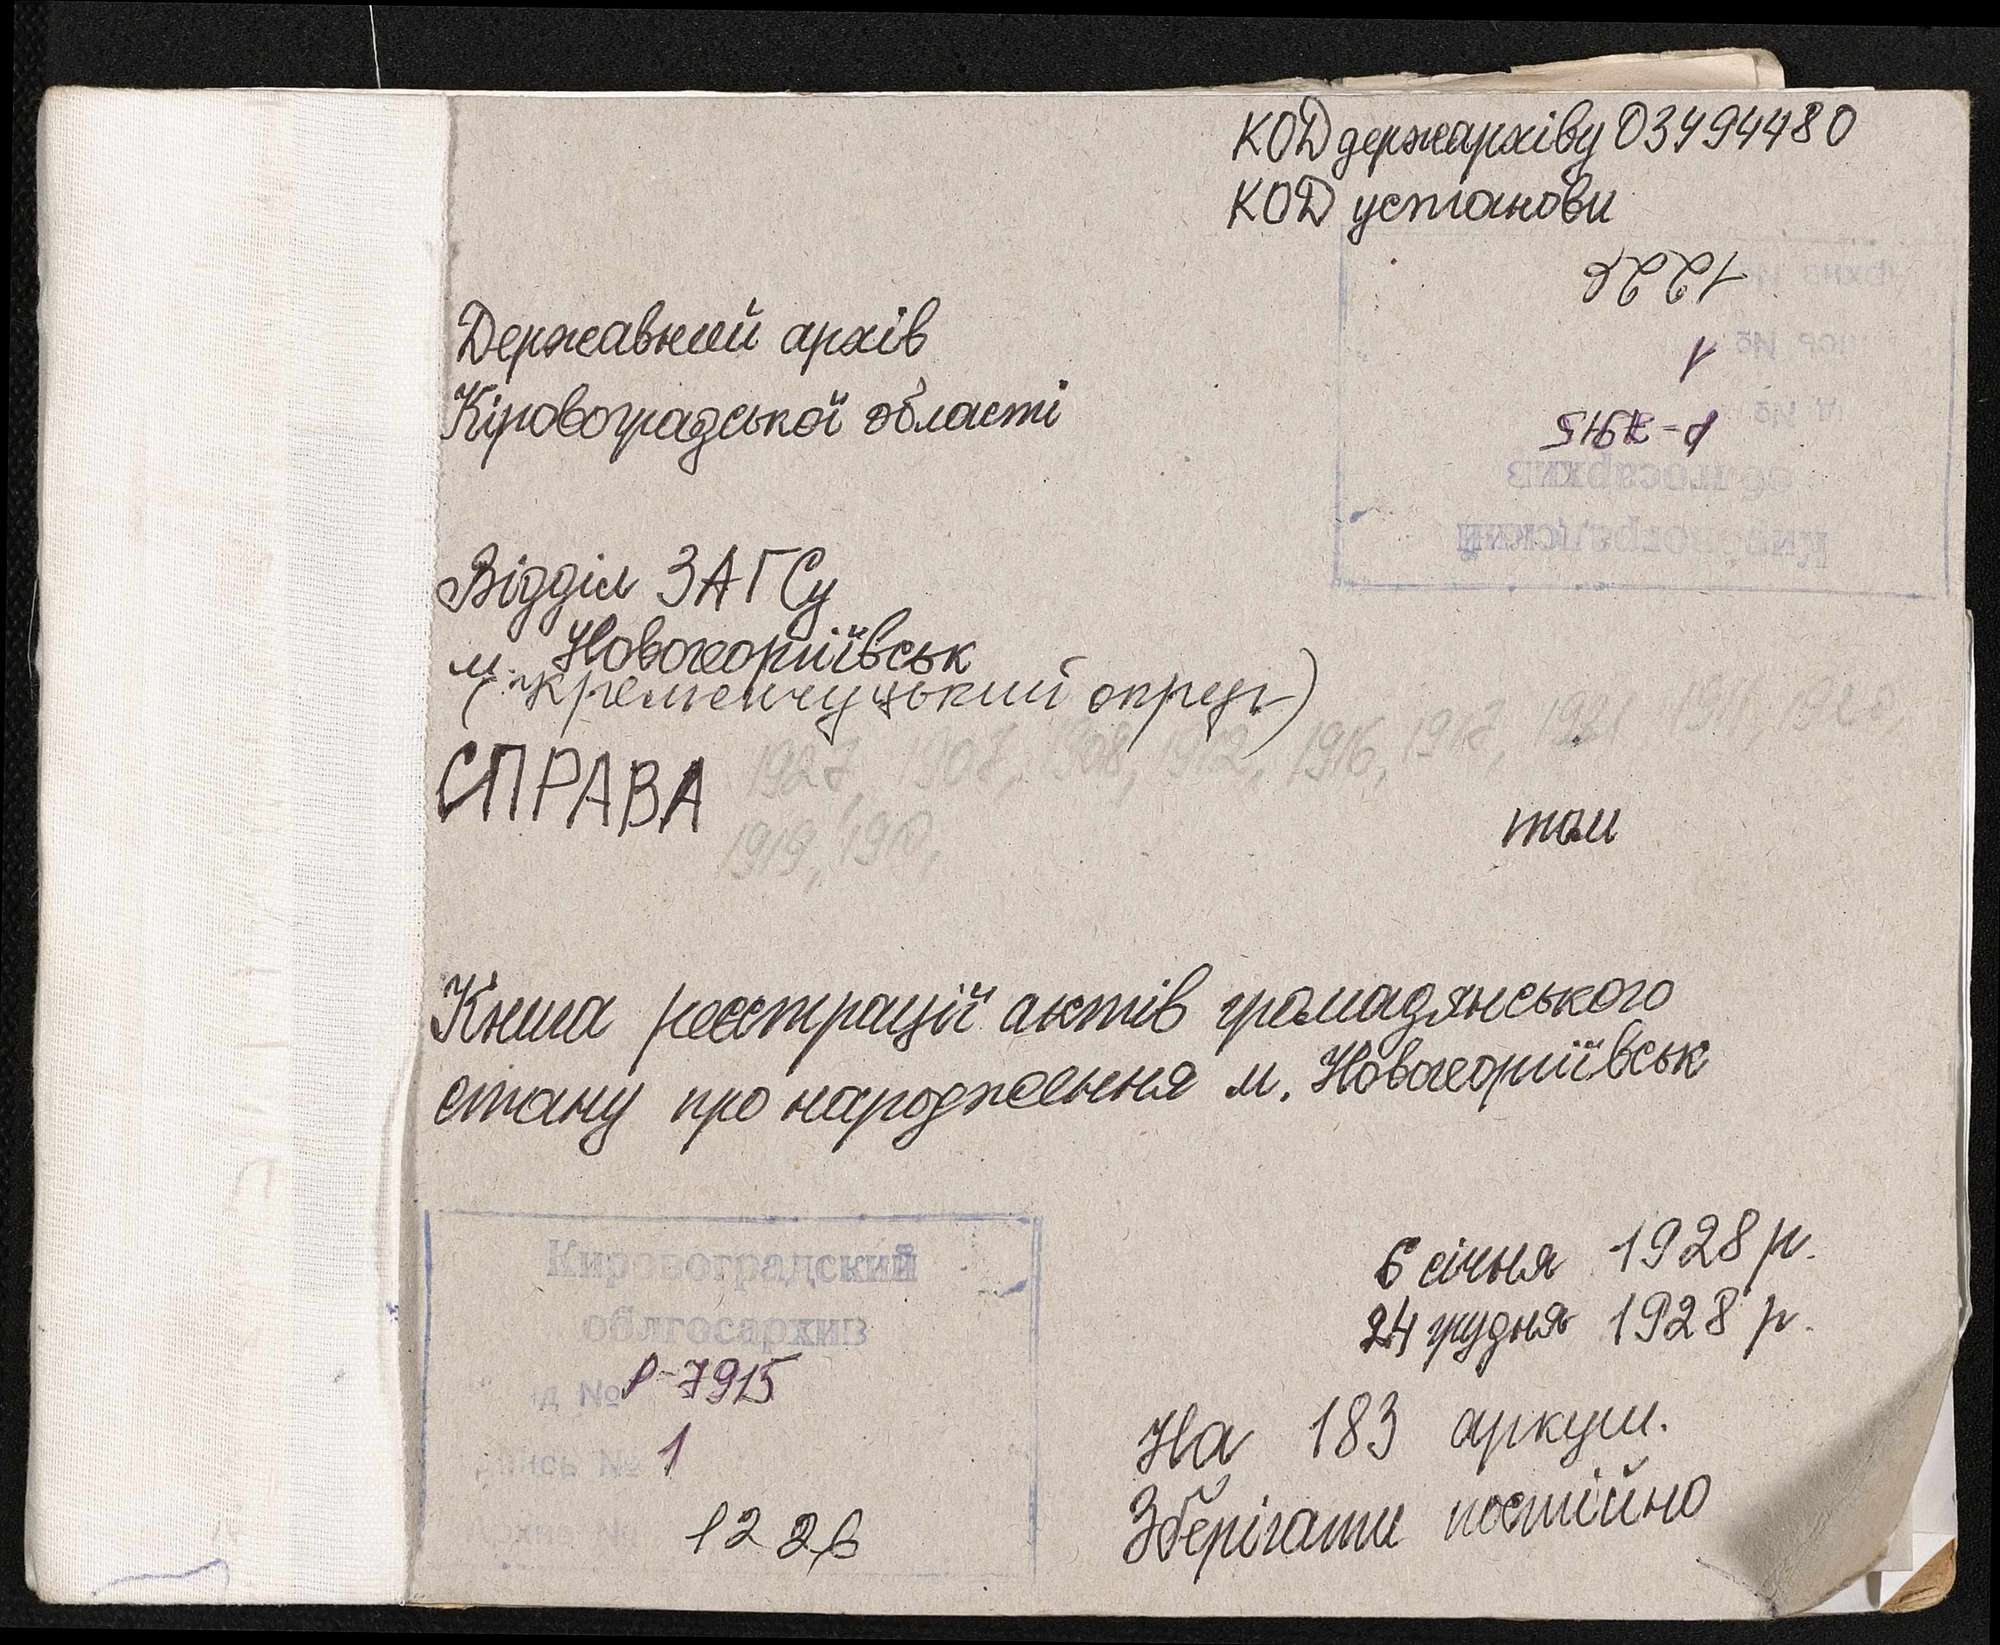 КОД держархіву 03494480
КОД установи
1226
1
Р-7915
Державний архів
Кіровоградської області
Відділ ЗАГСу
м. Новогеоргіївськ
(Кременчуцький округ)
1927, 1907, 1908, 1912, 1916, 1917, 1921, 1911, 1920,
СПРАВА
1919, 1910,
том
Книга реєстрації актів громадянського
стану про народження м. Новогеоргіївськ
6 січня 1928 р.
24 грудня 1928 р.
На 183 аркуш.
Зберігати постійно
Кировоградский
облгосархив
д № Р-7915
пись № 1
1226